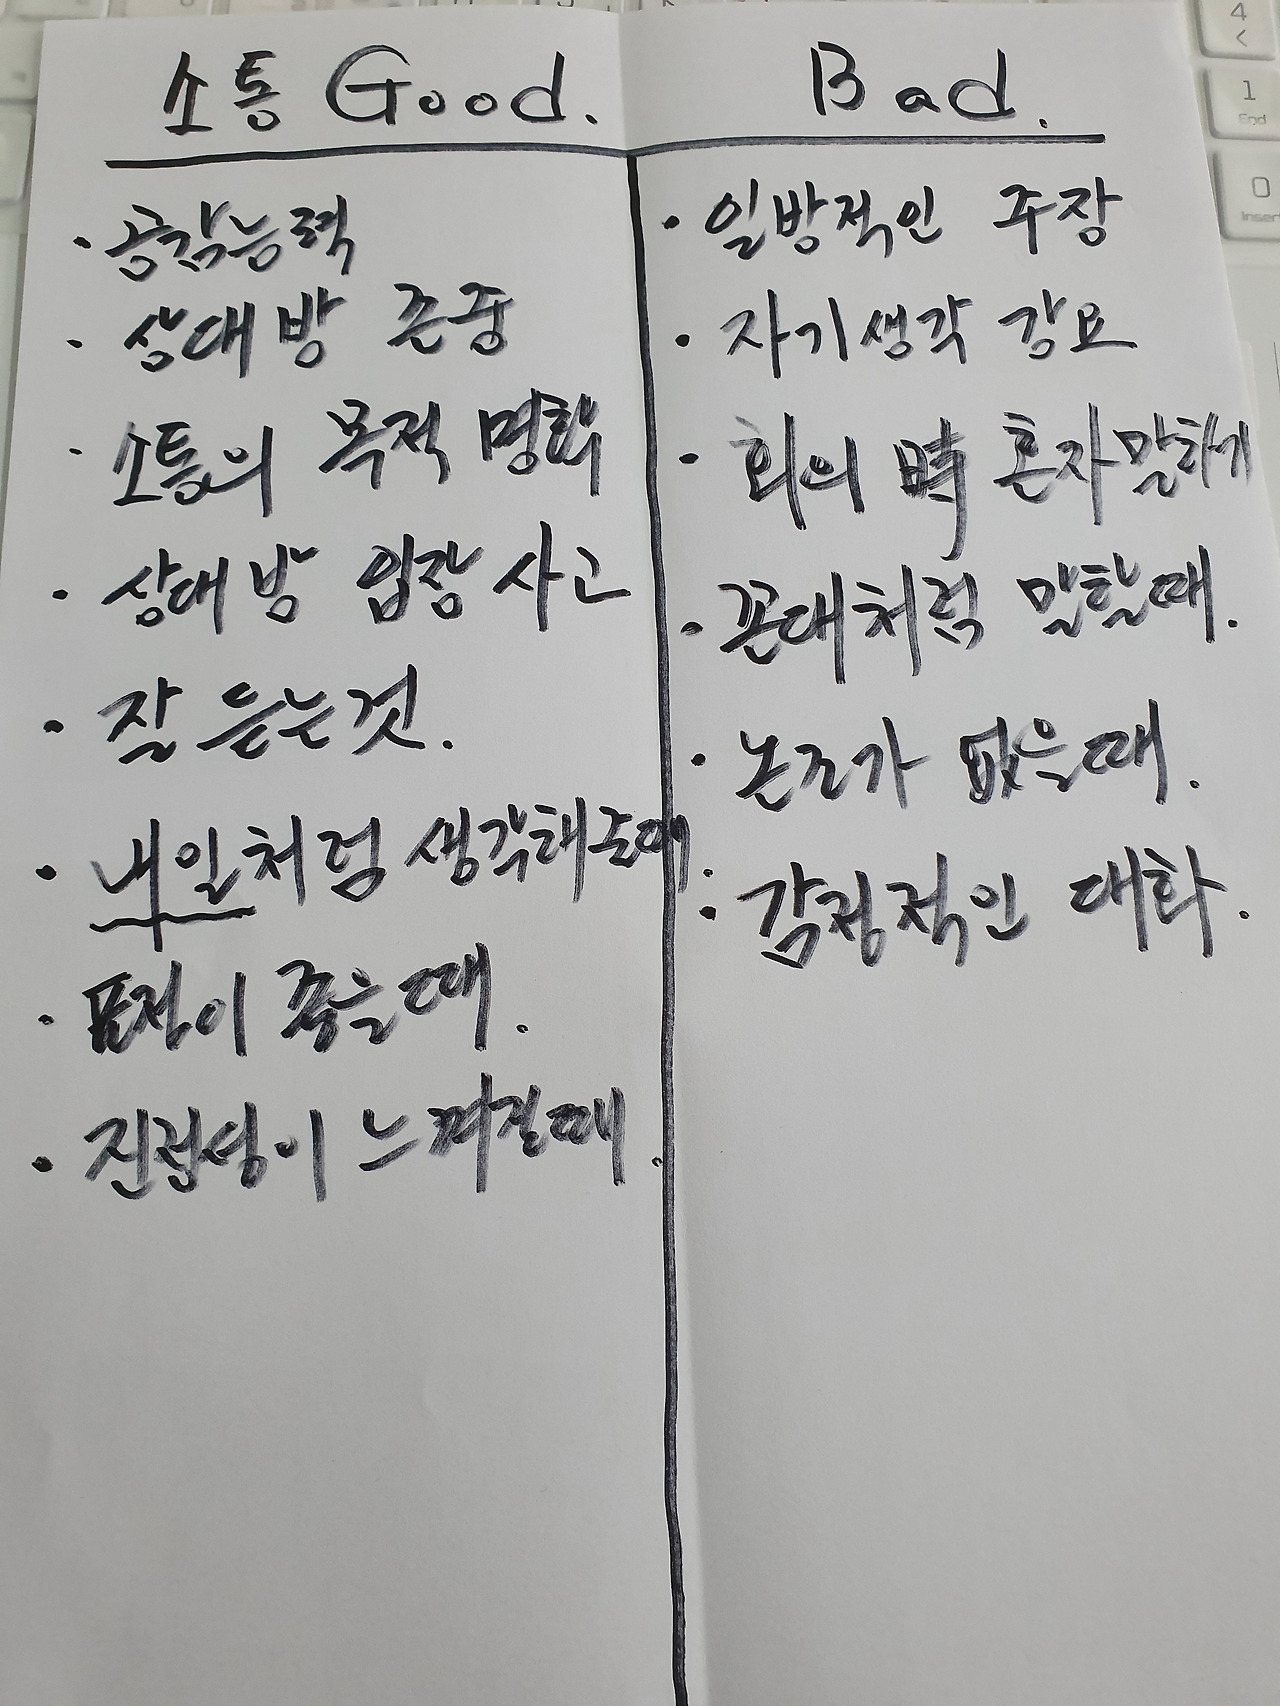 소통 Good.
· 공감능력
· 상대방 존중
· 소통의 목적 명확
· 상대방 입장 사고
· 잘 듣는것.
· 내일처럼 생각해줄때.
· 표정이 좋을때.
· 진정성이 느껴질때.
Bad.
· 일방적인 주장
· 자기생각 강요
· 회의 時 혼자말하기
· 꼰대처럼 말할때.
· 논조가 없을때.
· 감정적인 대화.
4
<
1
End
0
Insert